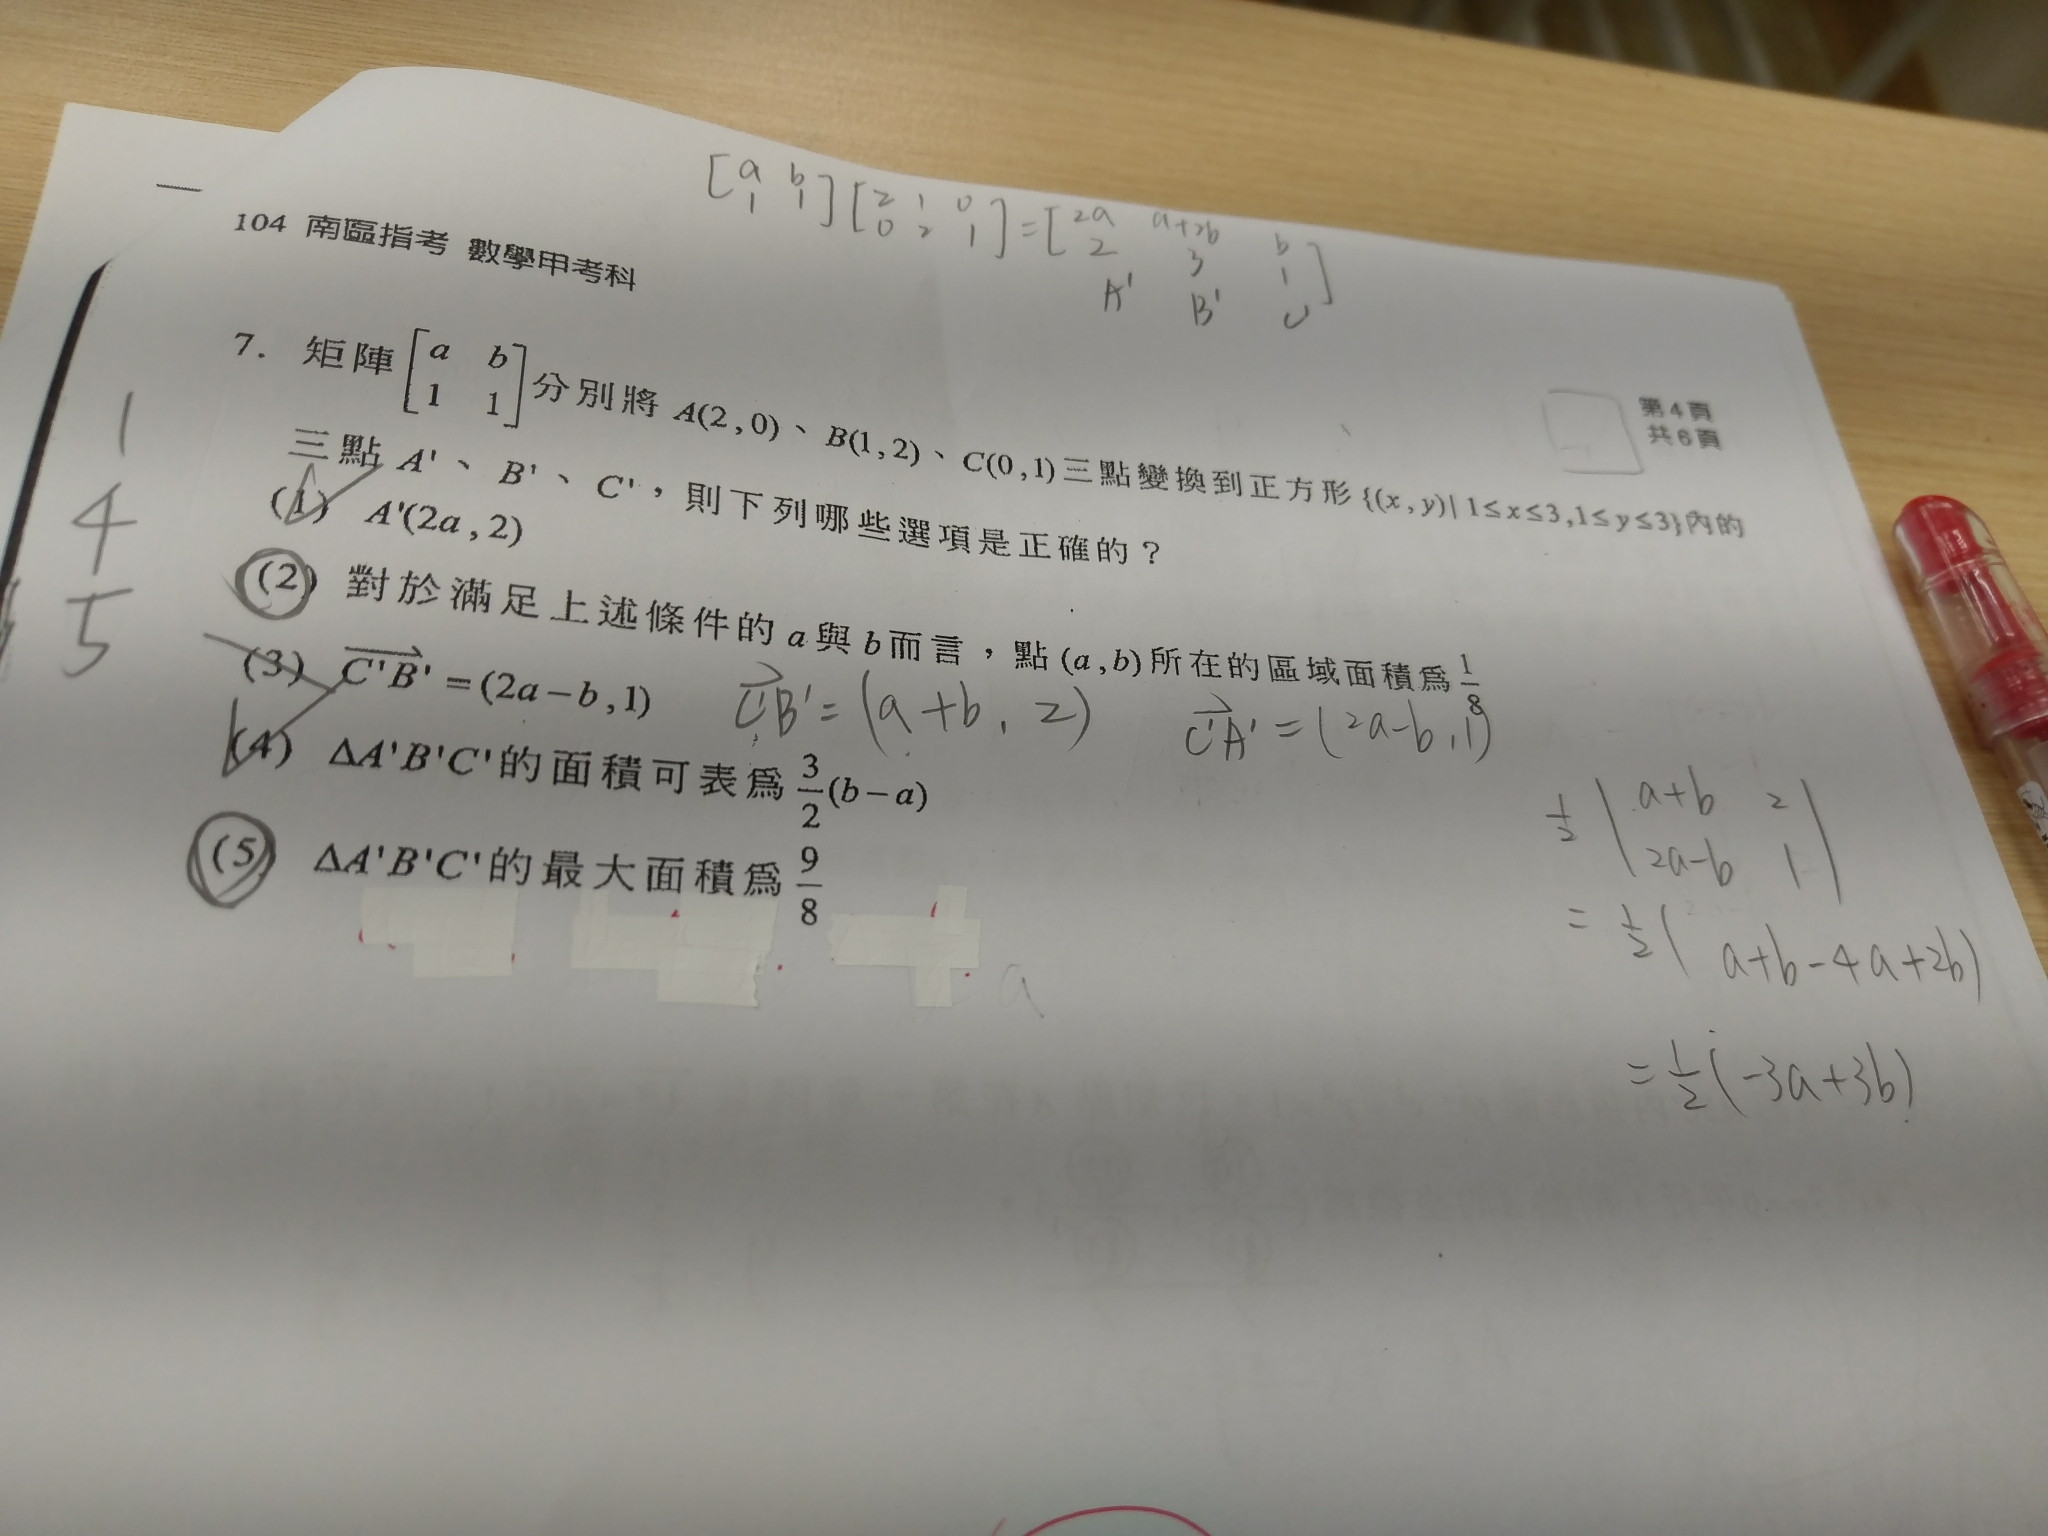 [a b
1 1] [2 1 0
0 2 1] = [2a a+2b b
2 3 1]
A' B'
104 南區指考 數學甲考科
第4頁
共6頁
7. 矩陣 [a b
1 1] 分別將 A(2,0)、B(1,2)、C(0,1)三點變換到正方形{(x,y)|1≤x≤3,1≤y≤3}內的
三點 A'、B'、C',則下列哪些選項是正確的?
(1) A'(2a,2)
(2) 對於滿足上述條件的a與b而言,點(a,b)所在的區域面積爲1/8
(3) C'B'=(2a−b,1)
C'B'=(a+b, 2) C'A'=(2a-b,1)
(4) ΔA'B'C'的面積可表爲3/2(b−a)
(5) ΔA'B'C'的最大面積爲9/8
1
4
5
1/2 |a+b 2
2a-b 1|
= 1/2( a+b-4a+2b)
= 1/2(-3a+3b)
a